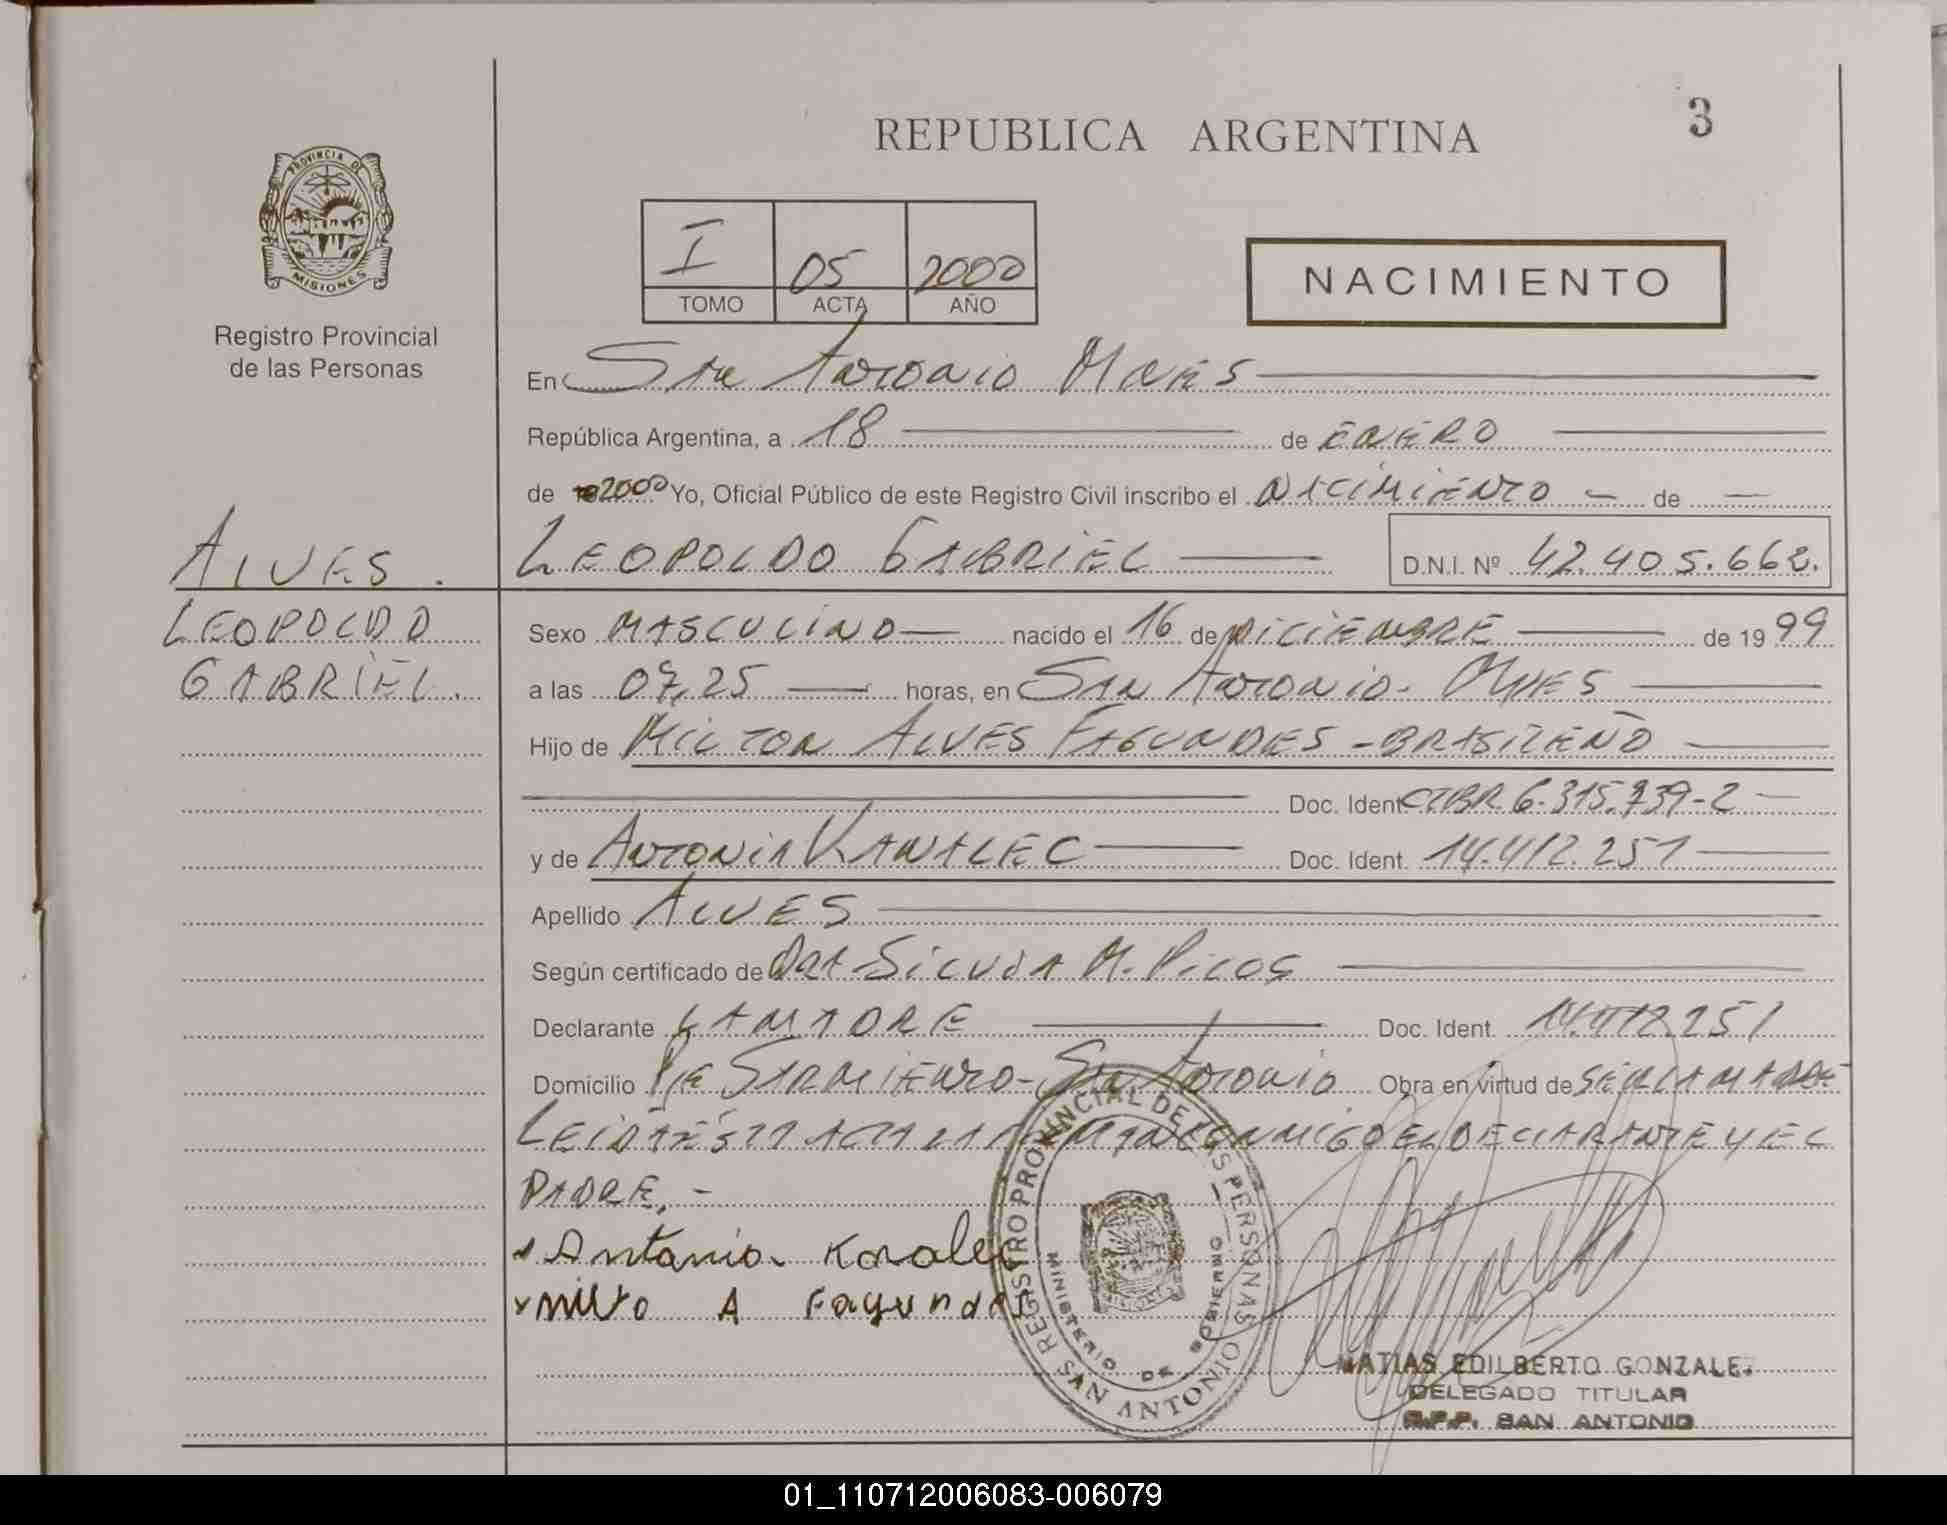 3
REPUBLICA ARGENTINA
PROVINCIA DE
MISIONES
Registro Provincial
de las Personas
I 05 2000
TOMO ACTA AÑO
NACIMIENTO
En San Antonio Mnes
República Argentina, a 18 de ENERO
de 2000 Yo, Oficial Público de este Registro Civil inscribo el NACIMIENTO de
ALVES. LEOPOLDO GABRIEL D.N.I. Nº 42.405.662.
LEOPOLDO
GABRIEL.
Sexo MASCULINO nacido el 16 de DICIEMBRE de 19 99
a las 07,25 horas, en SAN Antonio - Mnes
Hijo de MILTON ALVES FAGUNDES - BRASILEÑO
Doc. Ident. CIBR 6.315.739-2
y de ANTONIA KAWALEC Doc. Ident. 14.412.251
Apellido ALVES
Según certificado de DRA SILVIA M. PICOS
Declarante LA MADRE Doc. Ident. 14.412.251
Domicilio Pje SARMIENTO - San Antonio Obra en virtud de SER LA MADRE
LEIDA ESTA ACTA LA FIRMAN CONMIGO EL DECLARANTE Y EL
PADRE. -
Antonia Kovalec
Milto A Fagundes
REGISTRO PROVINCIAL DE LAS PERSONAS
MINISTERIO DE GOBIERNO
MISIONES
SAN ANTONIO
MATIAS EDILBERTO GONZALEZ
DELEGADO TITULAR
R.P.P. SAN ANTONIO
01_110712006083-006079